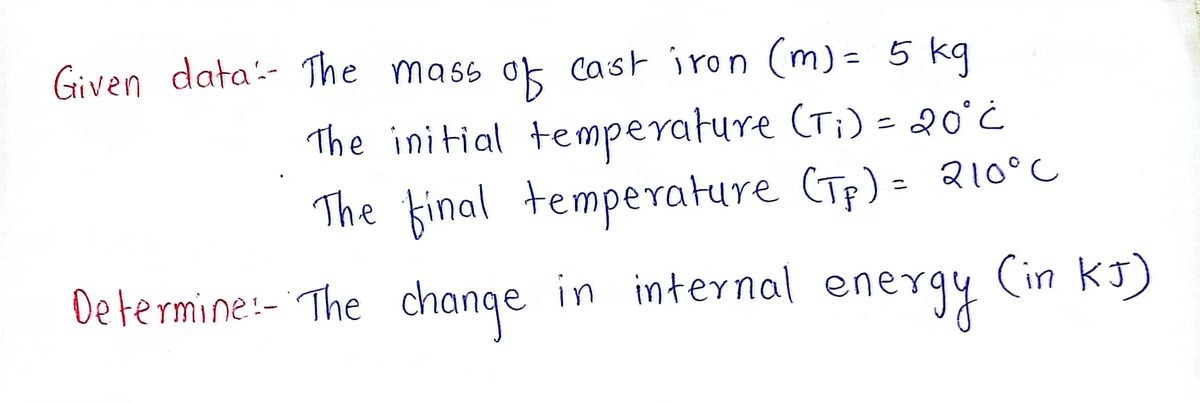 Given data:- The mass of cast iron (m) = 5 kg
The initial temperature (Ti) = 20°C
The final temperature (TF) = 210°C
Determine:- The change in internal energy (in kJ)